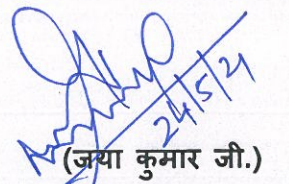 24/5/21
(जया कुमार जी.)